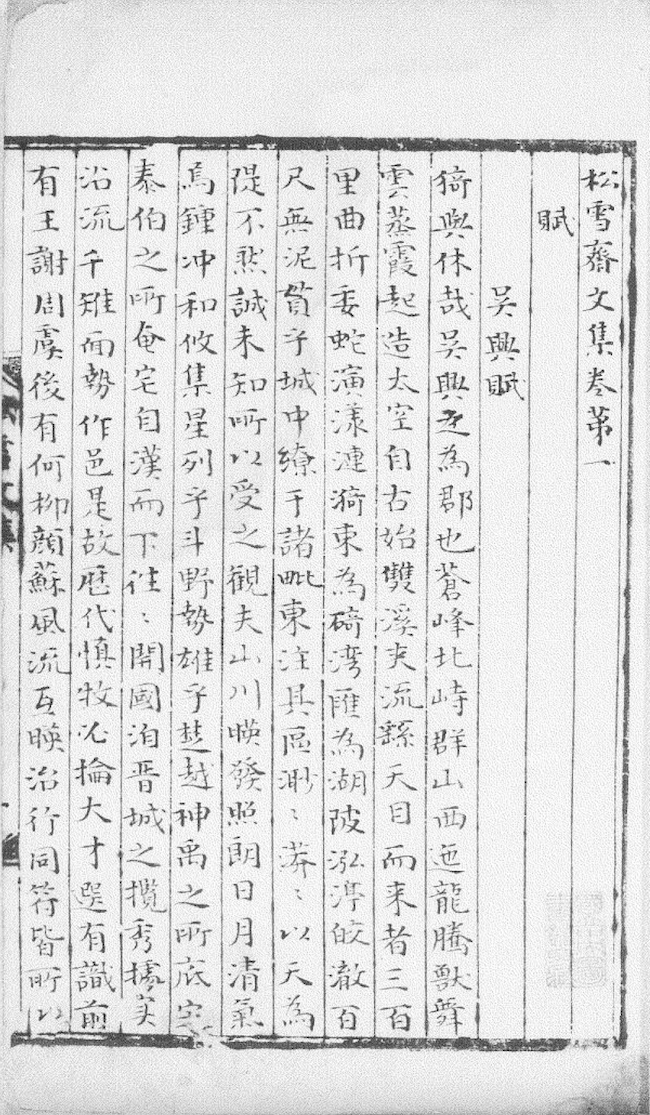 松雪齋文集卷第一
賦
吳興賦
猗與休哉吳興之為郡也蒼峰北峙群山西迤龍騰獸舞
雲蒸霞起造太空自古始雙溪夾流繇天目而来者三百
里曲折委蛇演漾漣漪束為碕灣匯為湖陂泓渟皎澈百
尺無泥貫乎城中繚于諸毗東注具區渺〻漭〻以天為
隄不然誠未知所以受之觀夫山川暎發照朗日月清氣
焉鍾冲和攸集星列乎斗野勢雄乎楚越神禹之所底定
泰伯之所奄宅自漢而下往〻開國洎晋城之攬秀據實
沿流千雉面勢作邑是故歷代慎牧必掄大才選有識前
有王謝周虞後有何柳顔蘇風流互暎治行同符皆所以